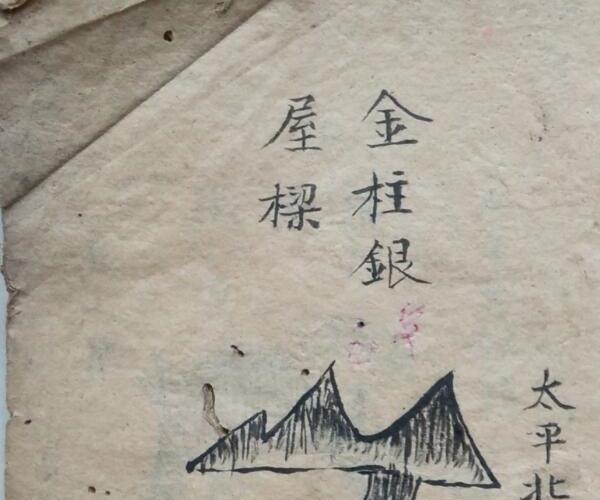 太平北
金柱銀
屋樑